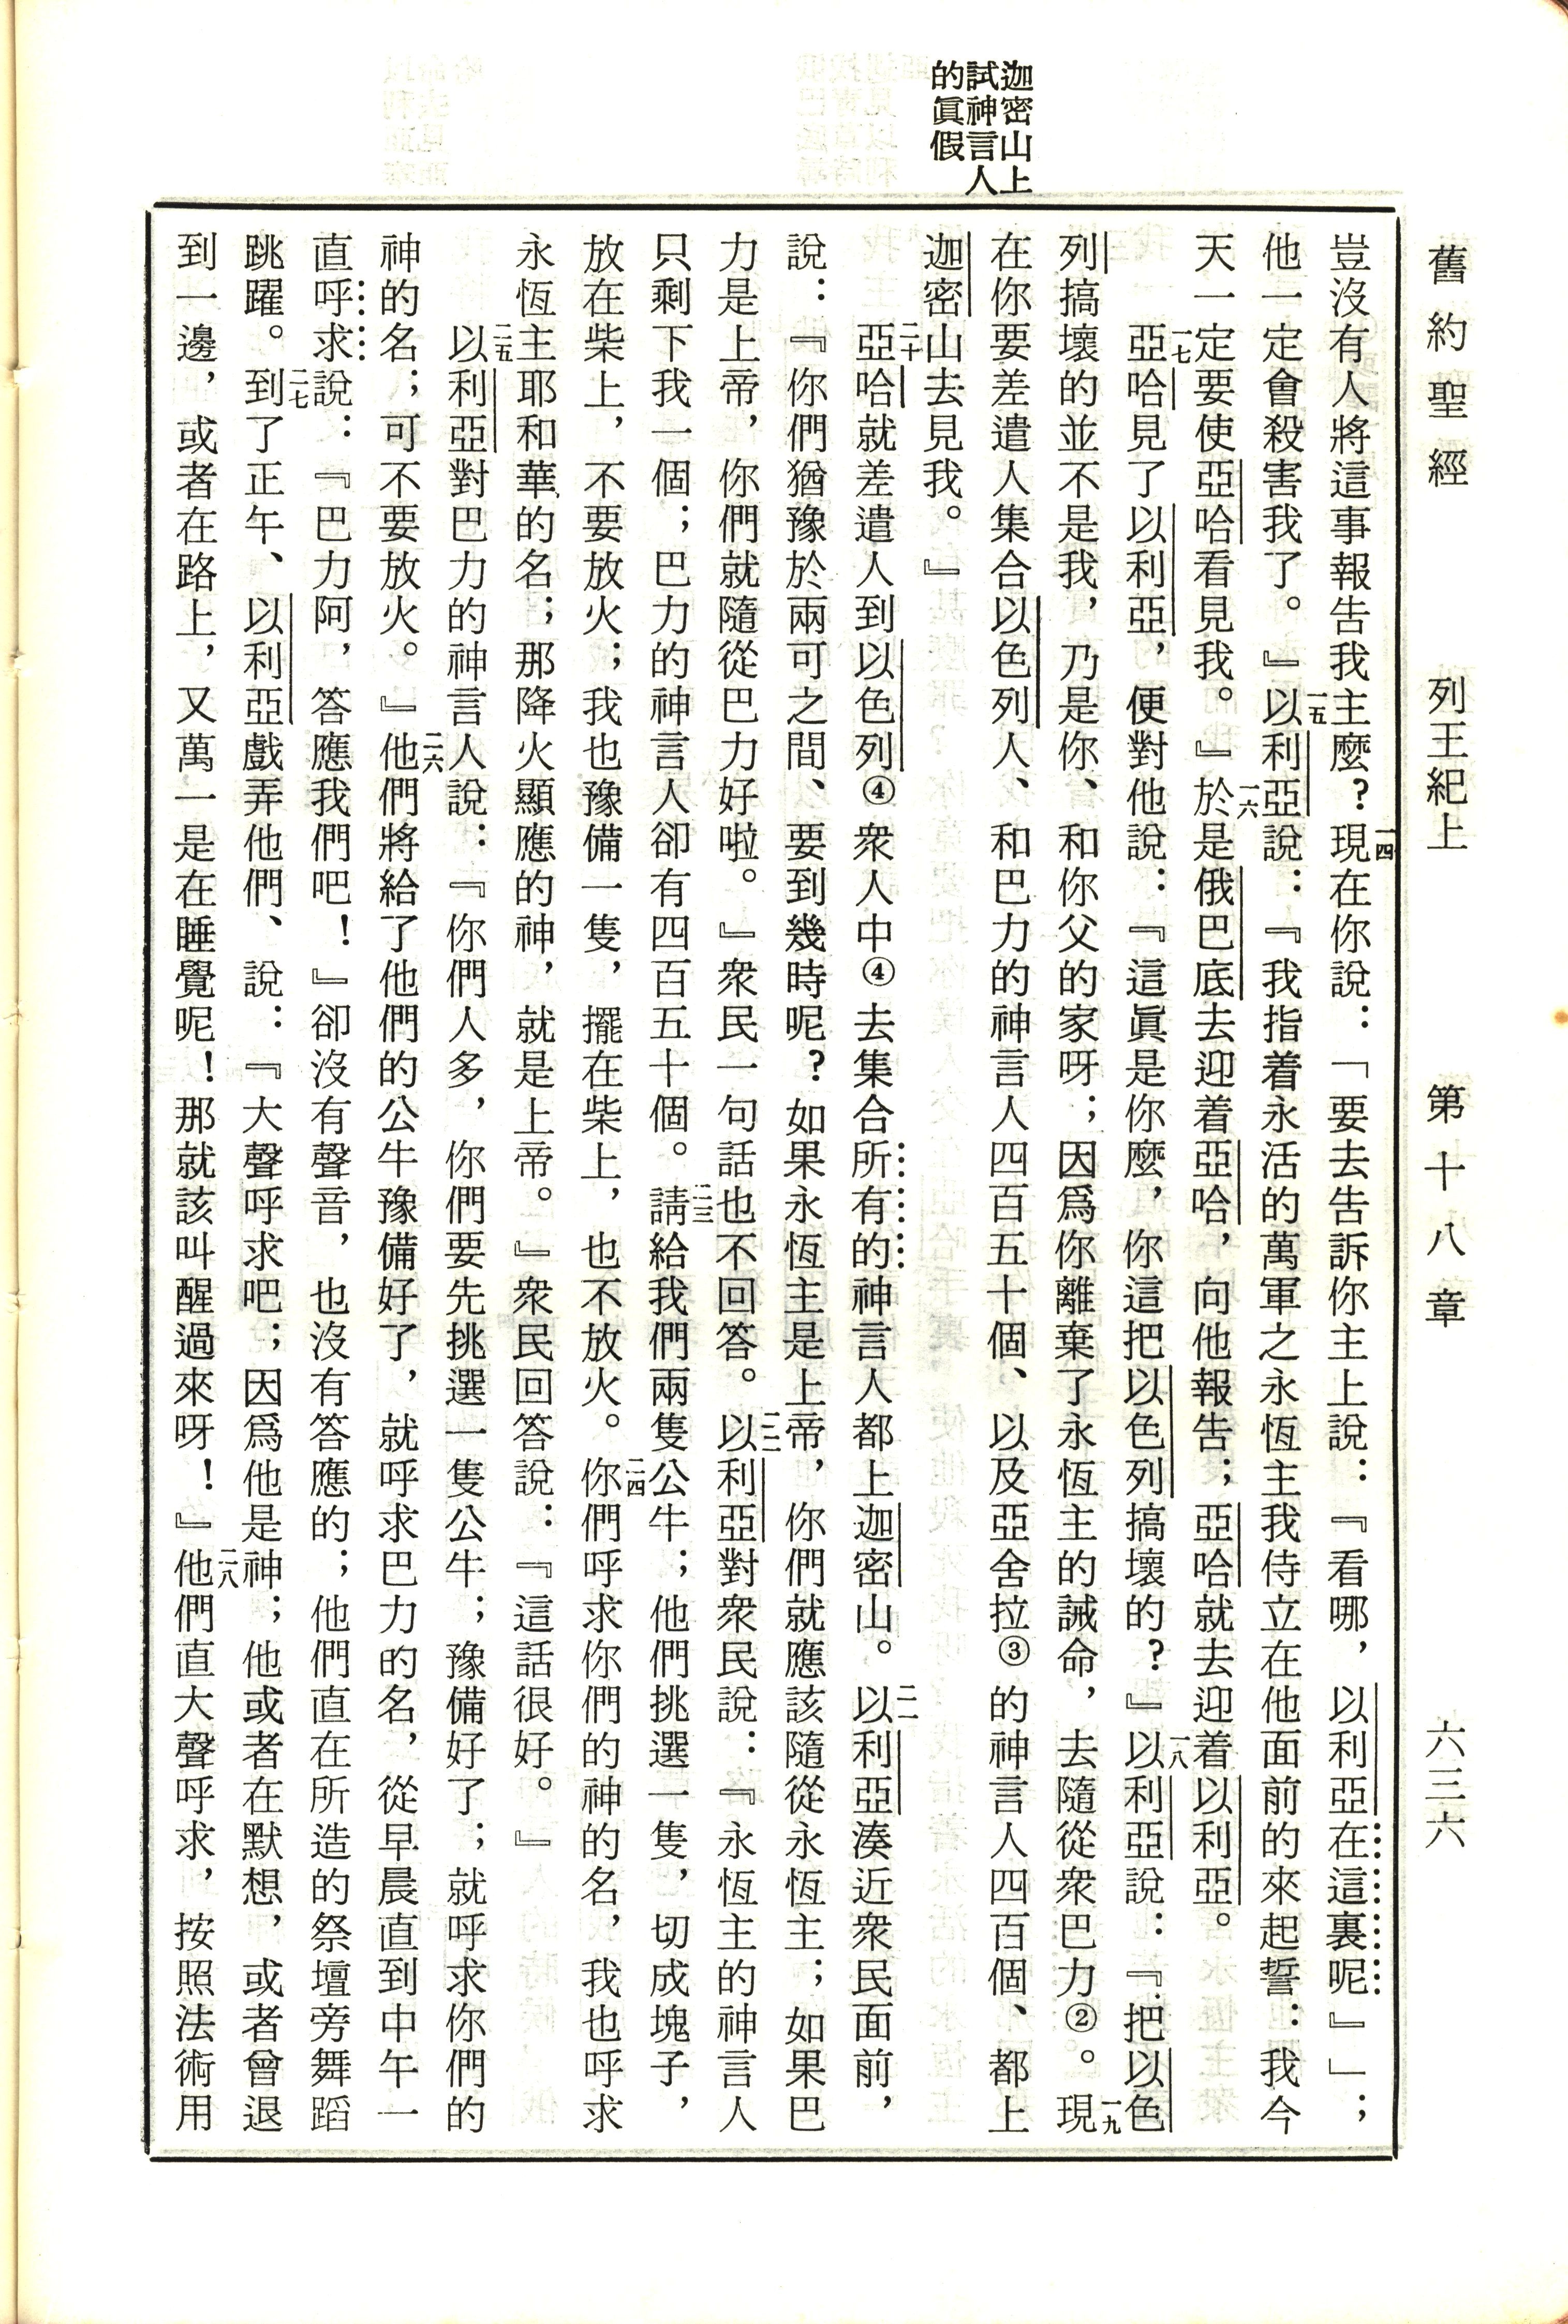 舊約聖經　列王紀上　第十八章　六三六
迦密山上
試神言人
的眞假
豈沒有人將這事報告我主麼？一四現在你說：「要去告訴你主上說：『看哪，以利亞在這裏呢』」；
他一定會殺害我了。』一五以利亞說：『我指着永活的萬軍之永恆主我侍立在他面前的來起誓：我今
天一定要使亞哈看見我。』一六於是俄巴底去迎着亞哈，向他報告；亞哈就去迎着以利亞。
一七亞哈見了以利亞，便對他說：『這眞是你麼，你這把以色列搞壞的？』一八以利亞說：『把以色
列搞壞的並不是我，乃是你、和你父的家呀；因爲你離棄了永恆主的誡命，去隨從衆巴力②。一九現
在你要差遣人集合以色列人、和巴力的神言人四百五十個、以及亞舍拉③的神言人四百個、都上
迦密山去見我。』
二十亞哈就差遣人到以色列④衆人中④去集合所有的神言人都上迦密山。二一以利亞湊近衆民面前，
說：『你們猶豫於兩可之間、要到幾時呢？如果永恆主是上帝，你們就應該隨從永恆主；如果巴
力是上帝，你們就隨從巴力好啦。』衆民一句話也不回答。二二以利亞對衆民說：『永恆主的神言人
只剩下我一個；巴力的神言人卻有四百五十個。二三請給我們兩隻公牛；他們挑選一隻，切成塊子，
放在柴上，不要放火；我也豫備一隻，擺在柴上，也不放火。二四你們呼求你們的神的名，我也呼求
永恆主耶和華的名；那降火顯應的神，就是上帝。』衆民回答說：『這話很好。』
二五以利亞對巴力的神言人說：『你們人多，你們要先挑選一隻公牛；豫備好了；就呼求你們的
神的名；可不要放火。』二六他們將給了他們的公牛豫備好了，就呼求巴力的名，從早晨直到中午一
直呼求說：『巴力阿，答應我們吧！』卻沒有聲音，也沒有答應的；他們直在所造的祭壇旁舞蹈
跳躍。二七到了正午、以利亞戲弄他們、說：『大聲呼求吧；因爲他是神；他或者在默想，或者曾退
到一邊，或者在路上，又萬一是在睡覺呢！那就該叫醒過來呀！』二八他們直大聲呼求，按照法術用